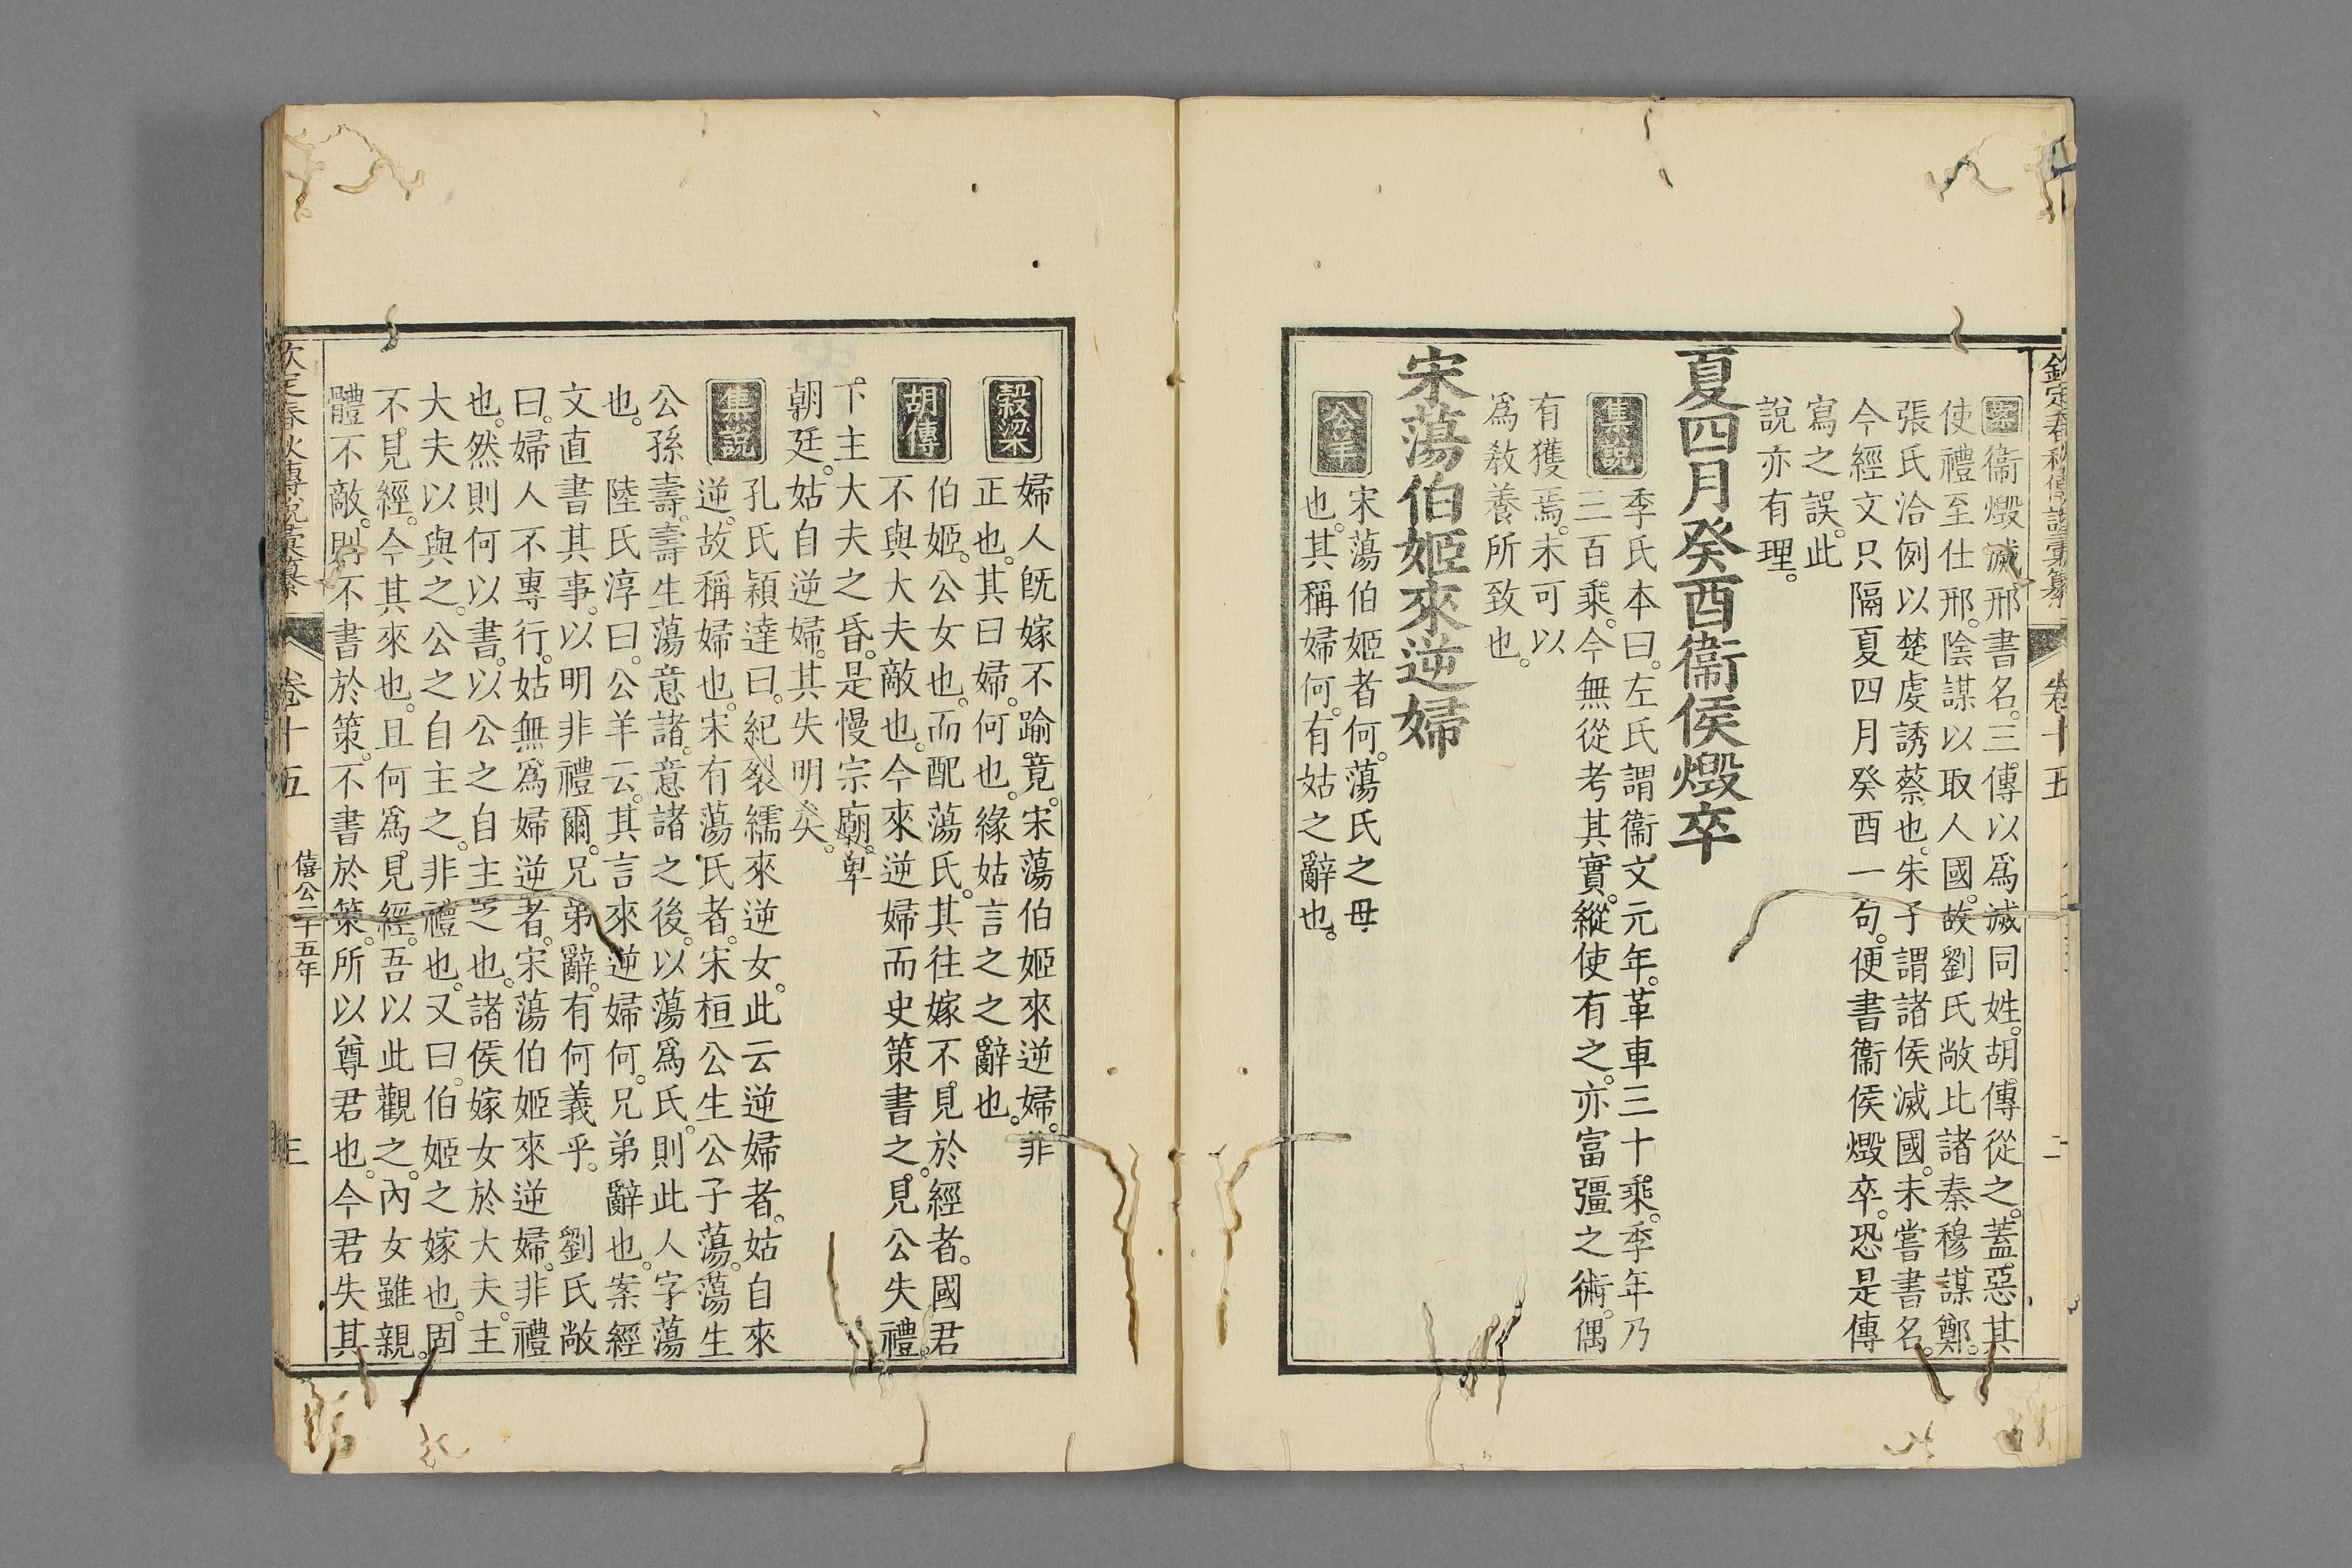 欽定春秋傳說彙纂 卷十五
案 衞燬滅邢書名三傳以爲滅同姓胡傳從之蓋惡其
使禮至仕邢陰謀以取人國故劉氏敞比諸秦穆謀鄭
張氏洽例以楚虔誘蔡也朱子謂諸侯滅國未嘗書名
今經文只隔夏四月癸酉一句便書衞侯燬卒恐是傳
寫之誤此
說亦有理
夏四月癸酉衞侯燬卒
集說 季氏本曰左氏謂衞文元年革車三十乘季年乃
三百乘今無從考其實縱使有之亦富彊之術偶
有獲焉未可以
爲敎養所致也
宋蕩伯姬來逆婦
公羊 宋蕩伯姬者何蕩氏之母
也其稱婦何有姑之辭也
穀梁 婦人旣嫁不踰竟宋蕩伯姬來逆婦非
正也其曰婦何也緣姑言之之辭也
胡傳 伯姬公女也而配蕩氏其往嫁不見於經者國君
不與大夫敵也今來逆婦而史策書之見公失禮
下主大夫之昏是慢宗廟卑
朝廷姑自逆婦其失明矣
集說 孔氏穎達曰紀裂繻來逆女此云逆婦者姑自來
逆故稱婦也宋有蕩氏者宋桓公生公子蕩蕩生
公孫壽壽生蕩意諸意諸之後以蕩爲氏則此人字蕩
也 陸氏淳曰公羊云其言來逆婦何兄弟辭也案經
文直書其事以明非禮爾兄弟辭有何義乎 劉氏敞
曰婦人不專行姑無爲婦逆者宋蕩伯姬來逆婦非禮
也然則何以書以公之自主之也諸侯嫁女於大夫主
大夫以與之公之自主之非禮也又曰伯姬之嫁也固
不見經今其來也且何爲見經吾以此觀之內女雖親
體不敵則不書於策不書於策所以尊君也今君失其
欽定春秋傳說彙纂 卷十五 僖公二十五年